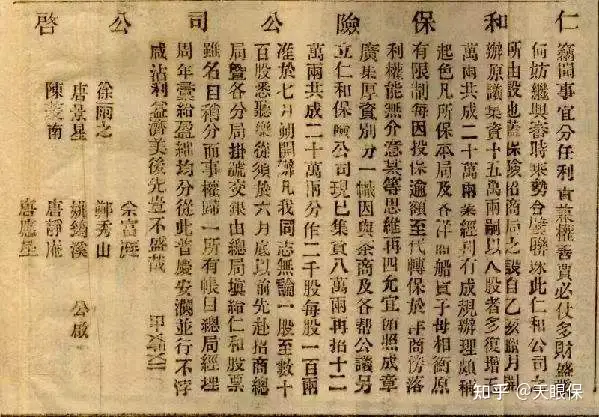 仁和保險公司公啓
竊聞事宜分任利貴兼權善賈必仗多財盛
何妨繼與善時乘勢合廣聯珠此仁和公司之
所由設也蓋保險招商局之設自乙亥臘月開
辦原議集資十五萬兩嗣以入股者多復增五
萬兩共成二十萬兩業經刊有成規辦理頗稱
起色凡所保本局及各洋面船貨子母相衡原
有限制每因投保逾額至代轉保於洋商傍落
利權能無介意某等思維再四允宜循照成章
廣集厚資別分一幟因與茶商及各帮公議另
立仁和保險公司現已集資八萬兩再招十二
萬兩共成二十萬兩分作二千股每股一百兩
准於七月朔開辦凡我同志無論一股至數十
百股悉聽樂從須於六月底以前先赴招商總
局曁各分局掛號交銀由總局填給仁和股票
雖名目稍分而事權歸一所有帳目總局經理
周年彙給盈絀均分從此普慶安瀾並行不悖
咸沾利益濟美後先豈不盛哉
徐雨之
唐景星
陳菱南
鄭秀山
唐靜庵
唐應星
公啟
知乎 @天眼保